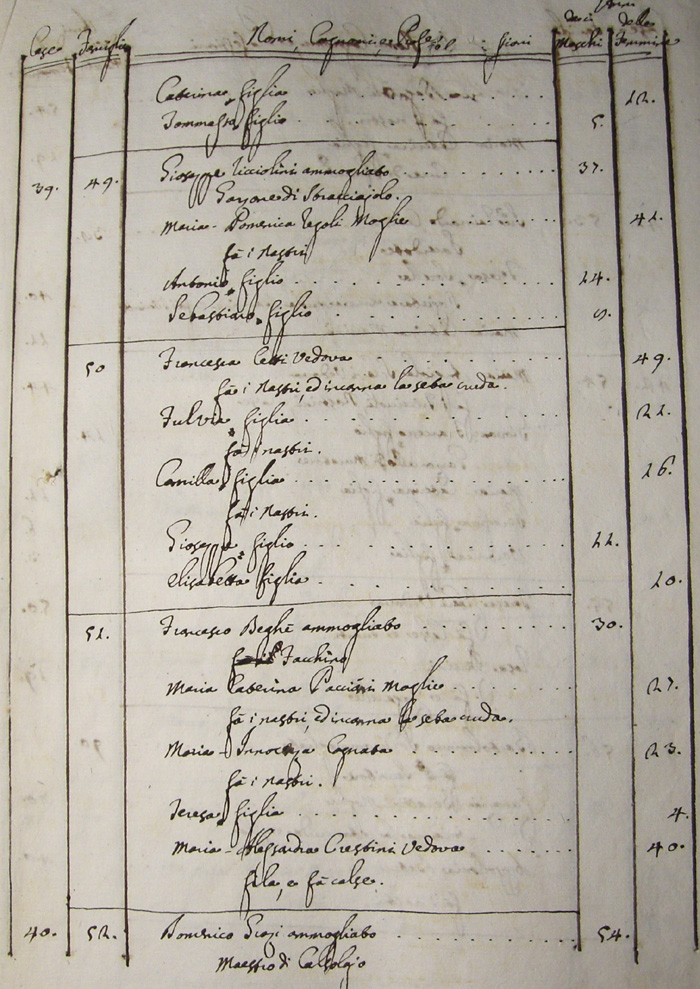 Anni
Case Famiglie Nomi, Cognomi, e Profess. dei Maschi delle Femmine
Caterina figlia 12.
Tommaso figlio 5.
39. 49. Giuseppe Ticciolini ammogliato 37.
Garzone di Stracciajolo.
Maria Domenica Tegoli Moglie 42.
fà i Nastri
Antonio figlio 14.
Sebastiano figlio 9.
50 Francesca Cetti Vedova 49.
fà i Nastri, ed incanna la seta cruda.
Fulvia figlia 22.
fà i nastri.
Camilla figlia 16.
fà i Nastri.
Giuseppe figlio 12.
Elisabetta figlia 10.
51. Francesco Beghè ammogliato 30.
Facchino
Maria Caterina Paccini Moglie 27.
fà i nastri, ed incanna la seta cruda.
Maria Innocenza Cognata 23.
fà i nastri.
Teresa figlia 4.
Maria Alessandra Crestini Vedova 40.
fila, e fà calze.
40. 52. Domenico ammogliato 54.
Maestro di Calzolajo